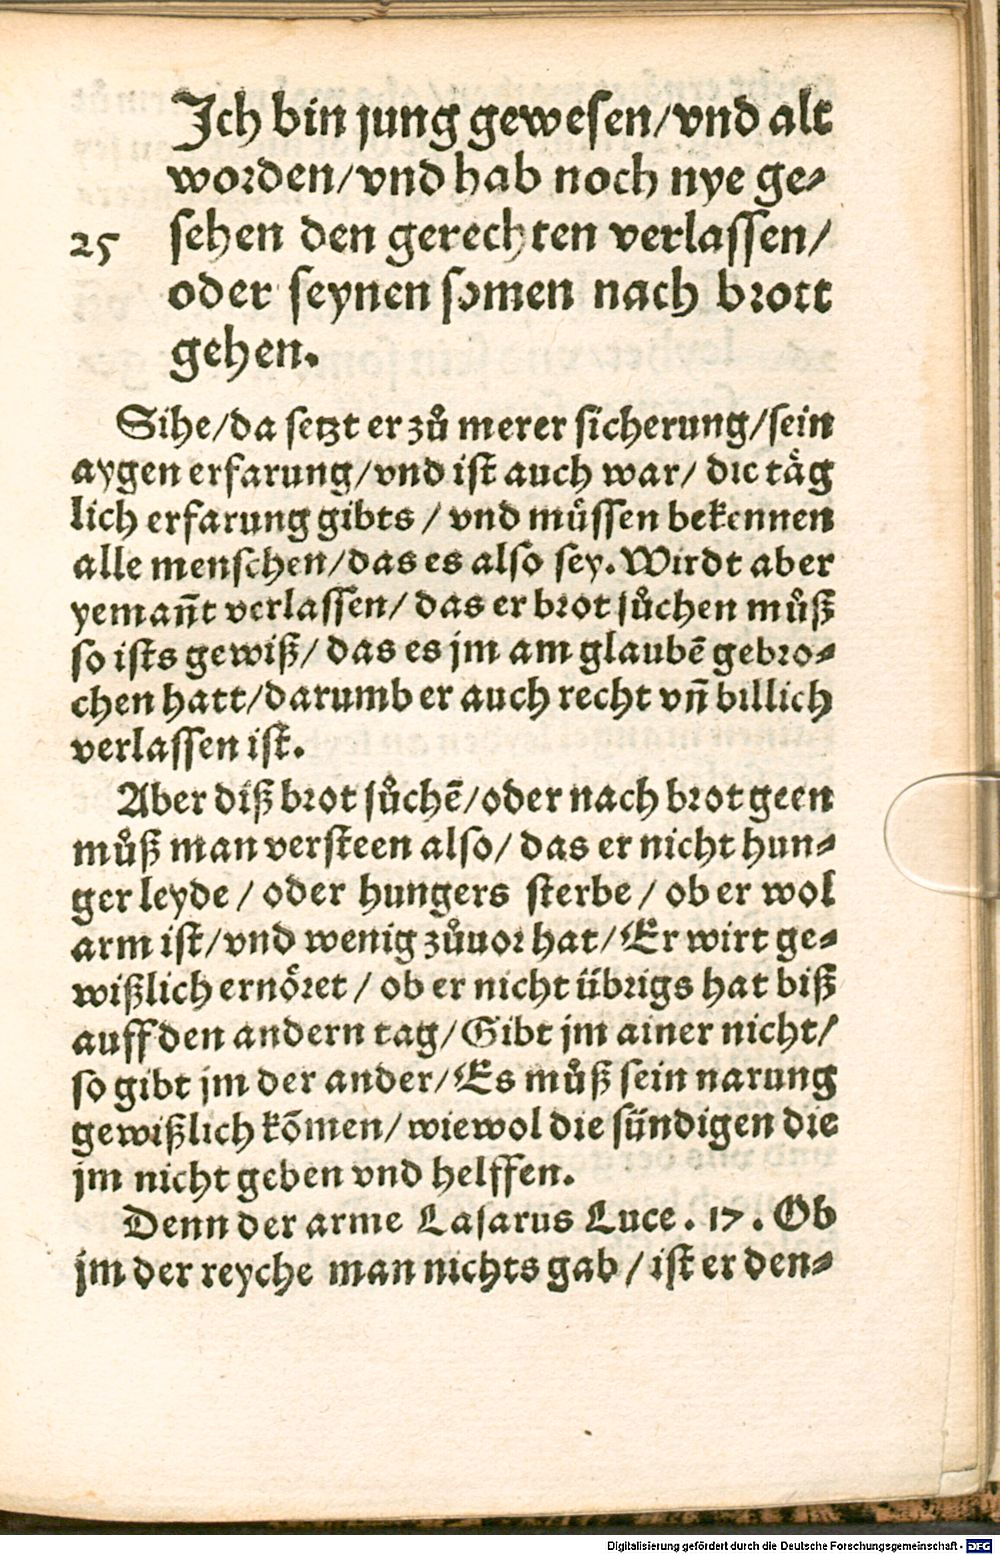 Ich bin jung gewesen/vnd alt
worden/vnd hab noch nye ge-
25 sehen den gerechten verlassen/
oder seynen somen nach brott
gehen.
Sihe/da setzt er zů merer sicherung/sein
aygen erfarung/vnd ist auch war/ die täg
lich erfarung gibts / vnd müssen bekennen
alle menschen/das es also sey. Wirdt aber
yemañt verlassen/ das er brot sůchen můß
so ists gewiß/ das es jm am glaubē gebro-
chen hatt/darumb er auch recht vñ billich
verlassen ist.
Aber diß brot sůchē/oder nach brot geen
můß man versteen also/ das er nicht hun-
ger leyde / oder hungers sterbe / ob er wol
arm ist/vnd wenig zůuor hat/Er wirt ge-
wißlich ernöret / ob er nicht übrigs hat biß
auff den andern tag/Gibt jm ainer nicht/
so gibt jm der ander/Es můß sein narung
gewißlich kõmen/wiewol die sündigen die
jm nicht geben vnd helffen.
Denn der arme Lasarus Luce. 17. Ob
jm der reyche man nichts gab / ist er den-
Digitalisierung gefördert durch die Deutsche Forschungsgemeinschaft - DFG